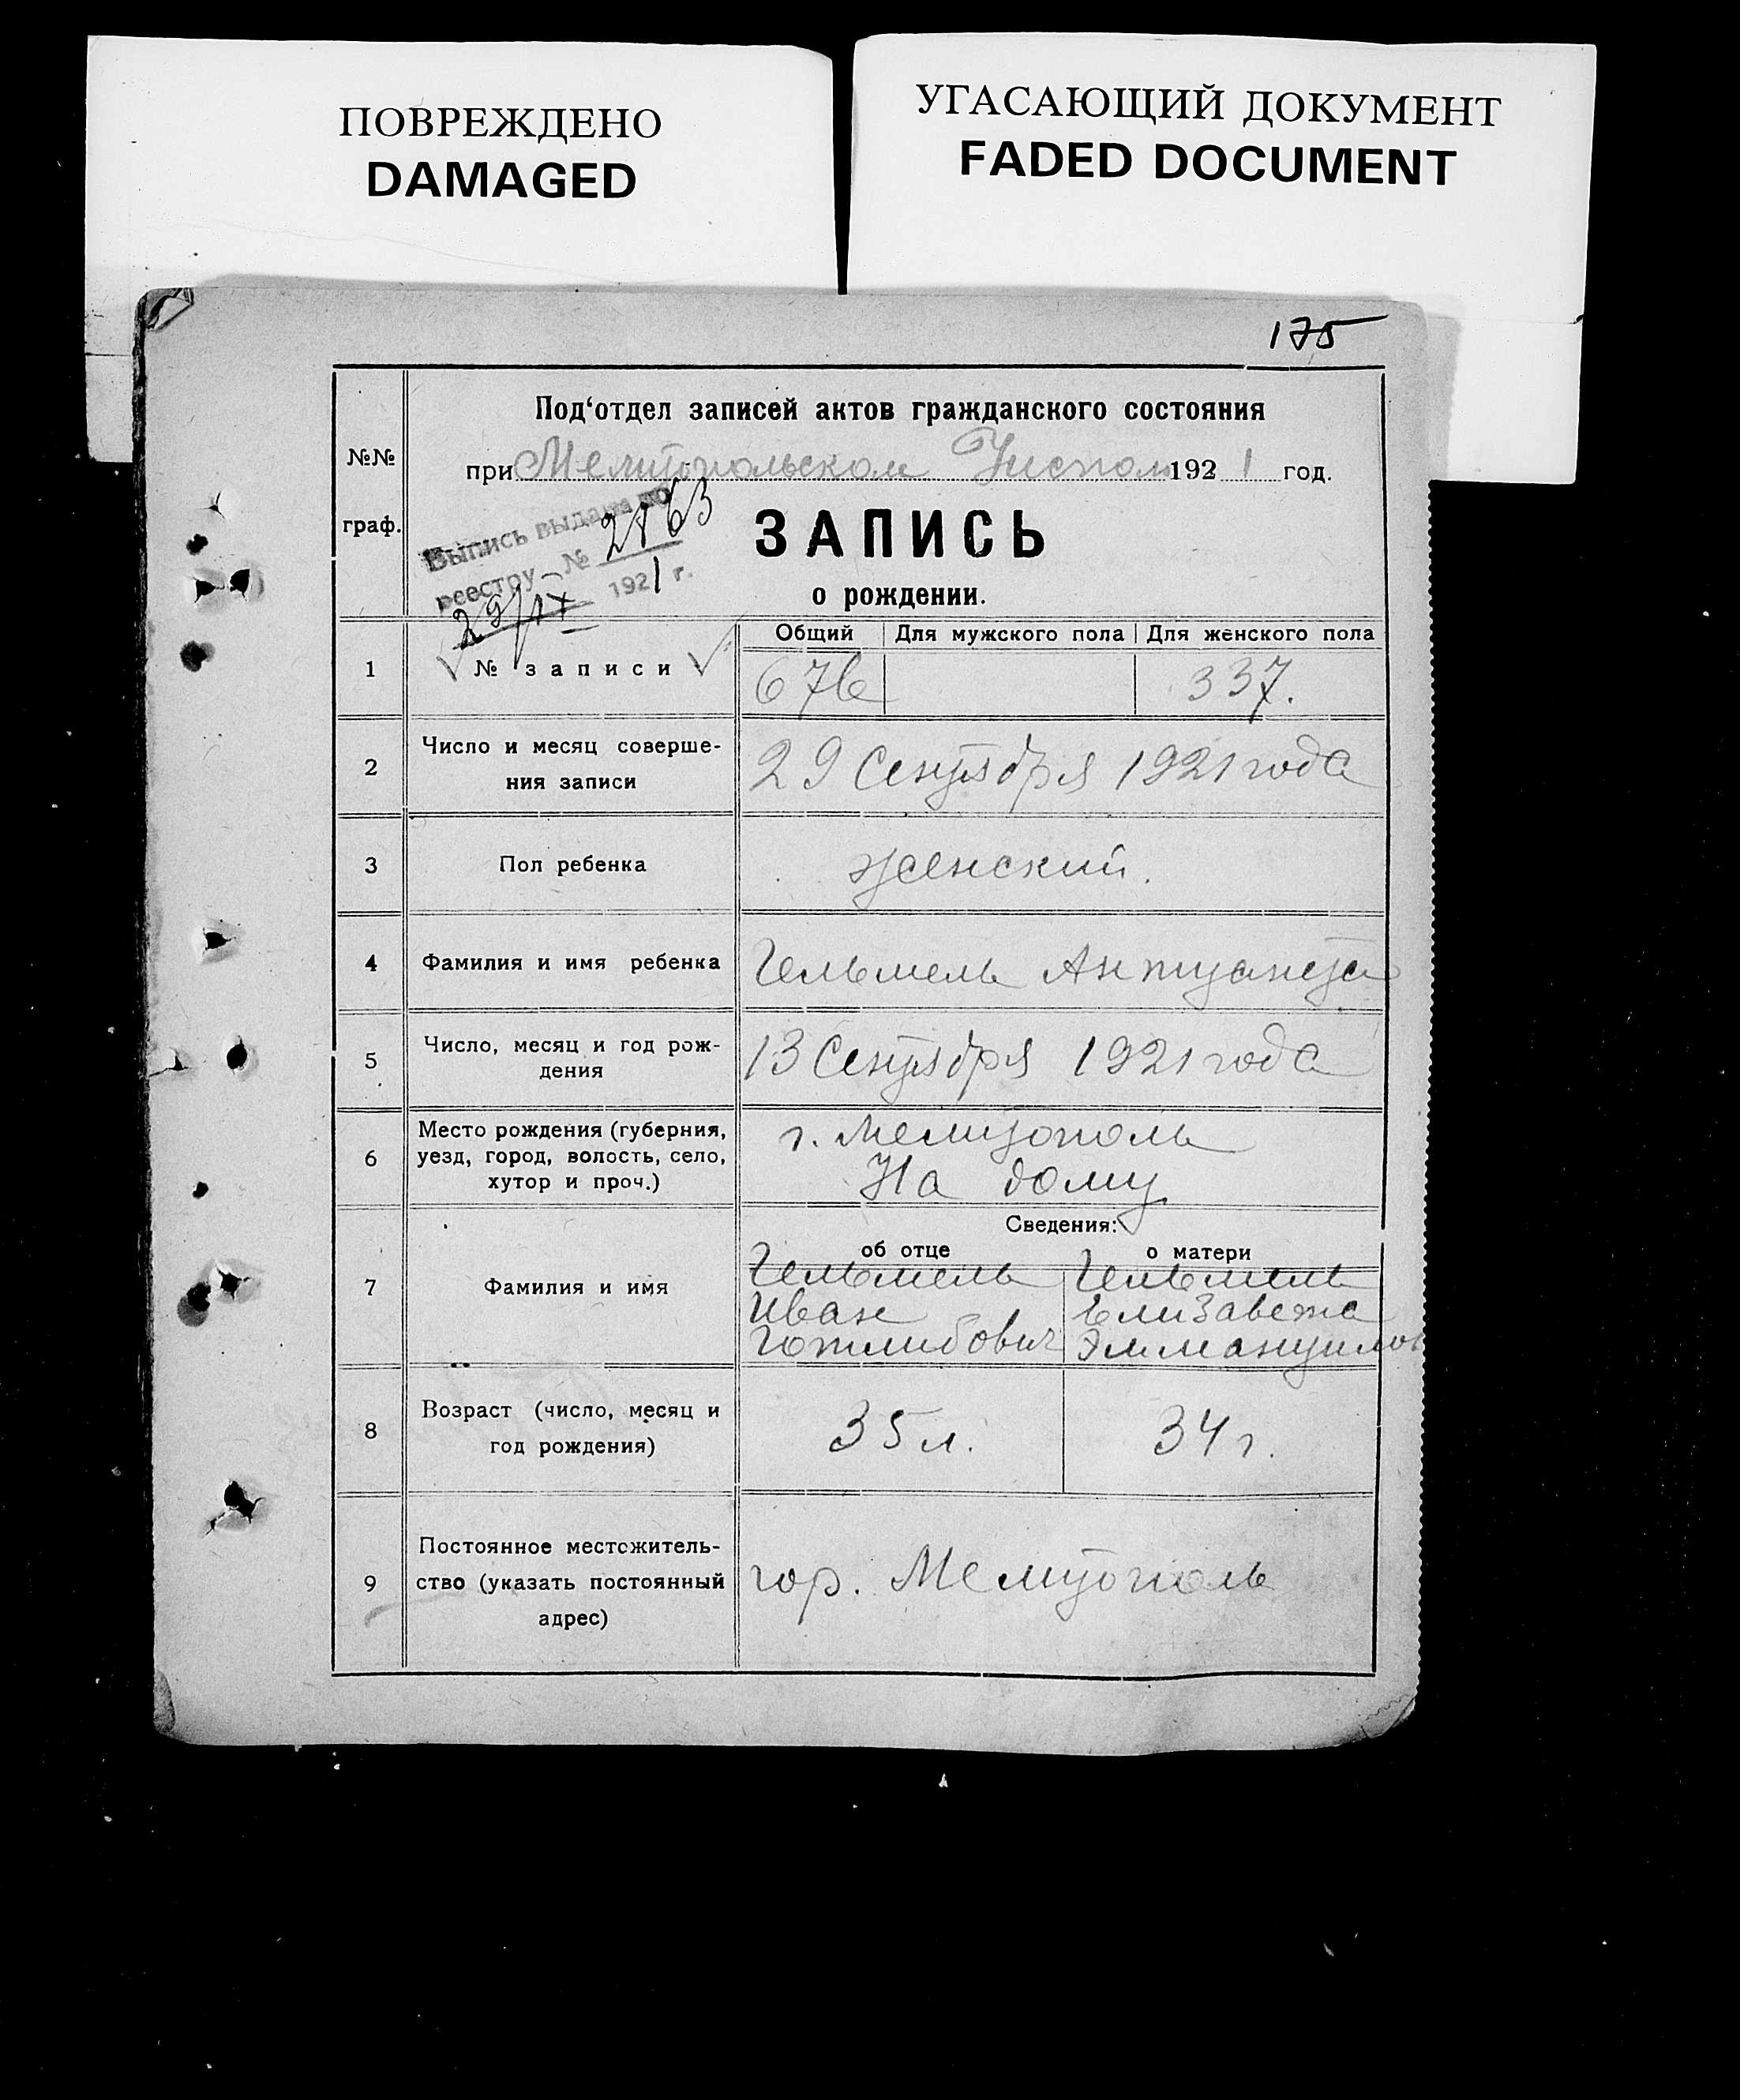 ПОВРЕЖДЕНО
DAMAGED
УГАСАЮЩИЙ ДОКУМЕНТ
FADED DOCUMENT
175
№№ граф.
Под‘отдел записей актов гражданского состояния
при Мелитопольском 1921 год.
Выпись выдана по
реестру № 2163
29/IX 1921 г.
ЗАПИСЬ
о рождении.
Общий Для мужского пола Для женского пола
1 № записи 676 337.
2 Число и месяц соверше-
ния записи
29 Сентября 1921 года
3 Пол ребенка женский.
4 Фамилия и имя ребенка Гельмель Антуанета
5 Число, месяц и год рож-
дения
13 Сентября 1921 года
6 Место рождения (губерния,
уезд, город, волость, село,
хутор и проч.)
г. Мелитополь
На дому
Сведения:
об отце о матери
7 Фамилия и имя
Гельмель
Иван
Готлибович
Гельмель
Елизавета
8 Возраст (число, месяц и
год рождения)
35 л. 34 г.
9 Постоянное местожитель-
ство (указать постоянный
адрес)
гор. Мелитополь